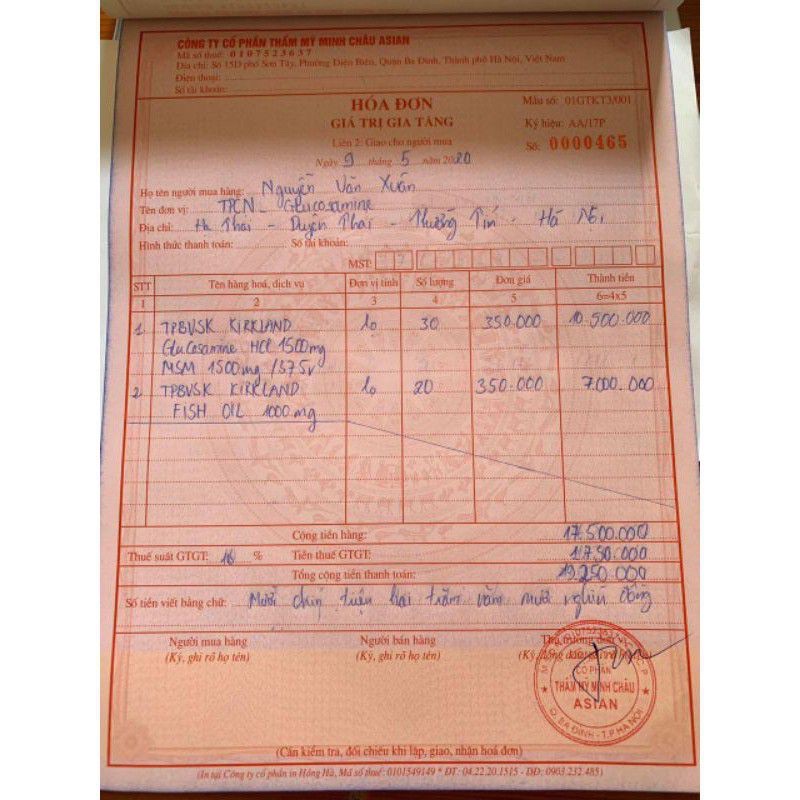 CÔNG TY CỔ PHẦN THẨM MỸ MINH CHÂU ASIAN
Mã số thuế: 0107523637
Địa chỉ: Số 15D phố Sơn Tây, Phường Điện Biên, Quận Ba Đình, Thành phố Hà Nội, Việt Nam
Điện thoại:
Số tài khoản:
HÓA ĐƠN
GIÁ TRỊ GIA TĂNG
Liên 2: Giao cho người mua
Ngày 9 tháng 5 năm 2020
Mẫu số: 01GTKT3/001
Ký hiệu: AA/17P
Số: 0000465
Họ tên người mua hàng: Nguyễn Văn Xuân
Tên đơn vị: TPCN - Glucosamine
Địa chỉ: Hạ Thái - Duyên Thái - Thường Tín - Hà Nội
Hình thức thanh toán: Số tài khoản:
MST:
STT Tên hàng hoá, dịch vụ Đơn vị tính Số lượng Đơn giá Thành tiền
1 2 3 4 5 6=4x5
1 TPBVSK KIRKLAND lọ 30 350.000 10.500.000
Glucosamine HCl 1500mg
MSM 1500mg /375v
2 TPBVSK KIRKLAND lọ 20 350.000 7.000.000
FISH OIL 1000mg
Cộng tiền hàng: 17.500.000
Thuế suất GTGT: % Tiền thuế GTGT: 1.750.000
Tổng cộng tiền thanh toán: 19.250.000
Số tiền viết bằng chữ: Mười chín triệu hai trăm năm mươi nghìn đồng
Người mua hàng Người bán hàng Thủ trưởng đơn vị
(Ký, ghi rõ họ tên) (Ký, ghi rõ họ tên) (Ký, đóng dấu,
CỔ PHẦN
THẨM MỸ MINH CHÂU
ASIAN
Q. BA ĐÌNH - T.P HÀ NỘI
(Cần kiểm tra, đối chiếu khi lập, giao, nhận hoá đơn)
(In tại Công ty cổ phần in Hồng Hà, Mã số thuế: 0101549149 * ĐT: 04.22.20.1515 - DĐ: 0903.232.485)